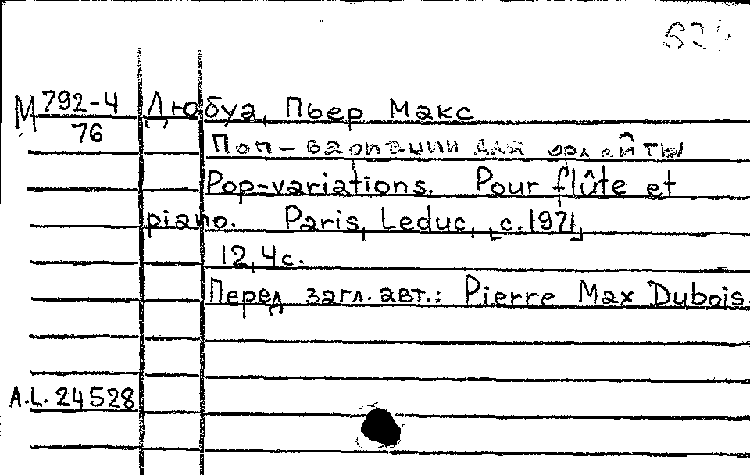 М 792-4
76
Дюбуа, Пьер Макс
Поп-вариации для флейты
Pop-variations. Pour flûte et
piano. Paris, Leduc, [c. 1971]
12, 4 с.
Перед загл. авт.: Pierre Max Dubois.
A.L. 24528